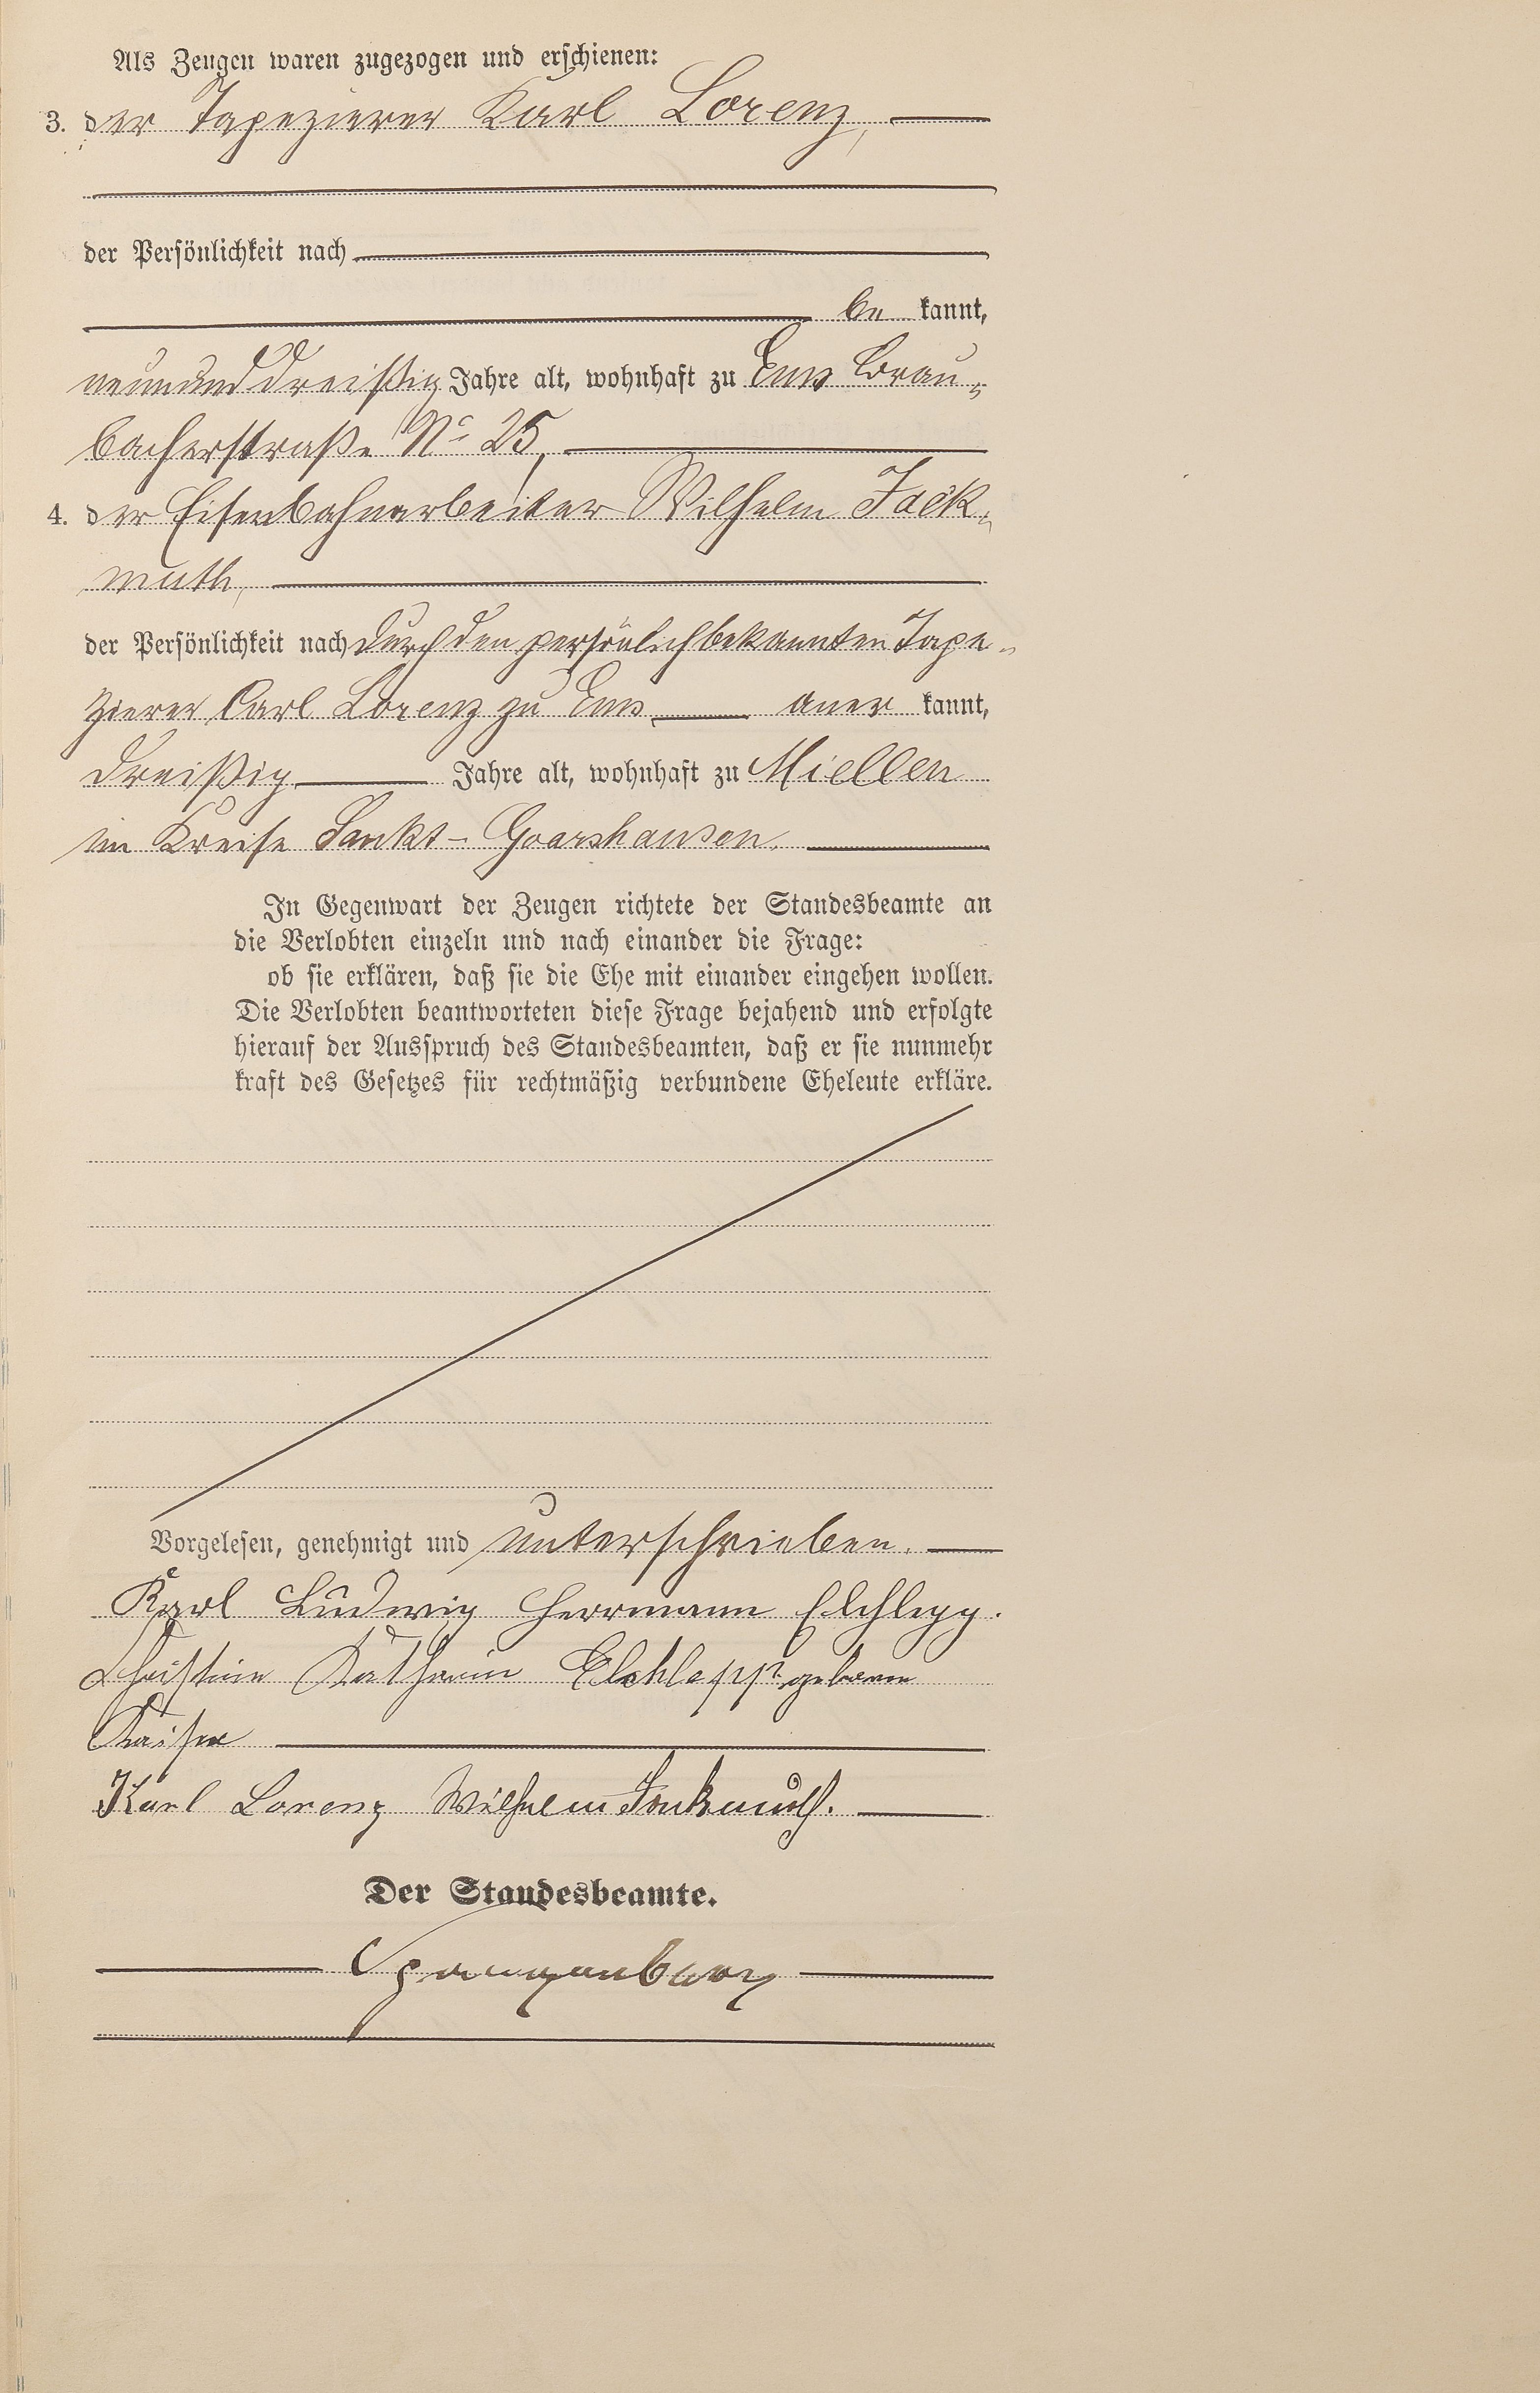 Als Zeugen waren zugezogen und erschienen:
3. der Tapezierer Karl Lorenz,
der Persönlichkeit nach
be kannt,
neununddreißig Jahre alt, wohnhaft zu Ems Brau-
bacherstraße No 25,
4. der Eisenbahnarbeiter Wilhelm Jack-
muth,
der Persönlichkeit nach durch den persönlich bekannten Tape-
zierer Carl Lorenz zu Ems aner kannt,
dreißig Jahre alt, wohnhaft zu Miellen
im Kreise Sankt-Goarshausen.
In Gegenwart der Zeugen richtete der Standesbeamte an
die Verlobten einzeln und nach einander die Frage:
ob sie erklären, daß sie die Ehe mit einander eingehen wollen.
Die Verlobten beantworteten diese Frage bejahend und erfolgte
hierauf der Ausspruch des Standesbeamten, daß er sie nunmehr
kraft des Gesetzes für rechtmäßig verbundene Eheleute erkläre.
Vorgelesen, genehmigt und unterschrieben.
Karl Ludwig Herrmann Elchlepp.
Christine Katharin Elchlepp geborene
Kaiser
Karl Lorenz Wilhelm Jackmuth.
Der Standesbeamte.
Spangenberg